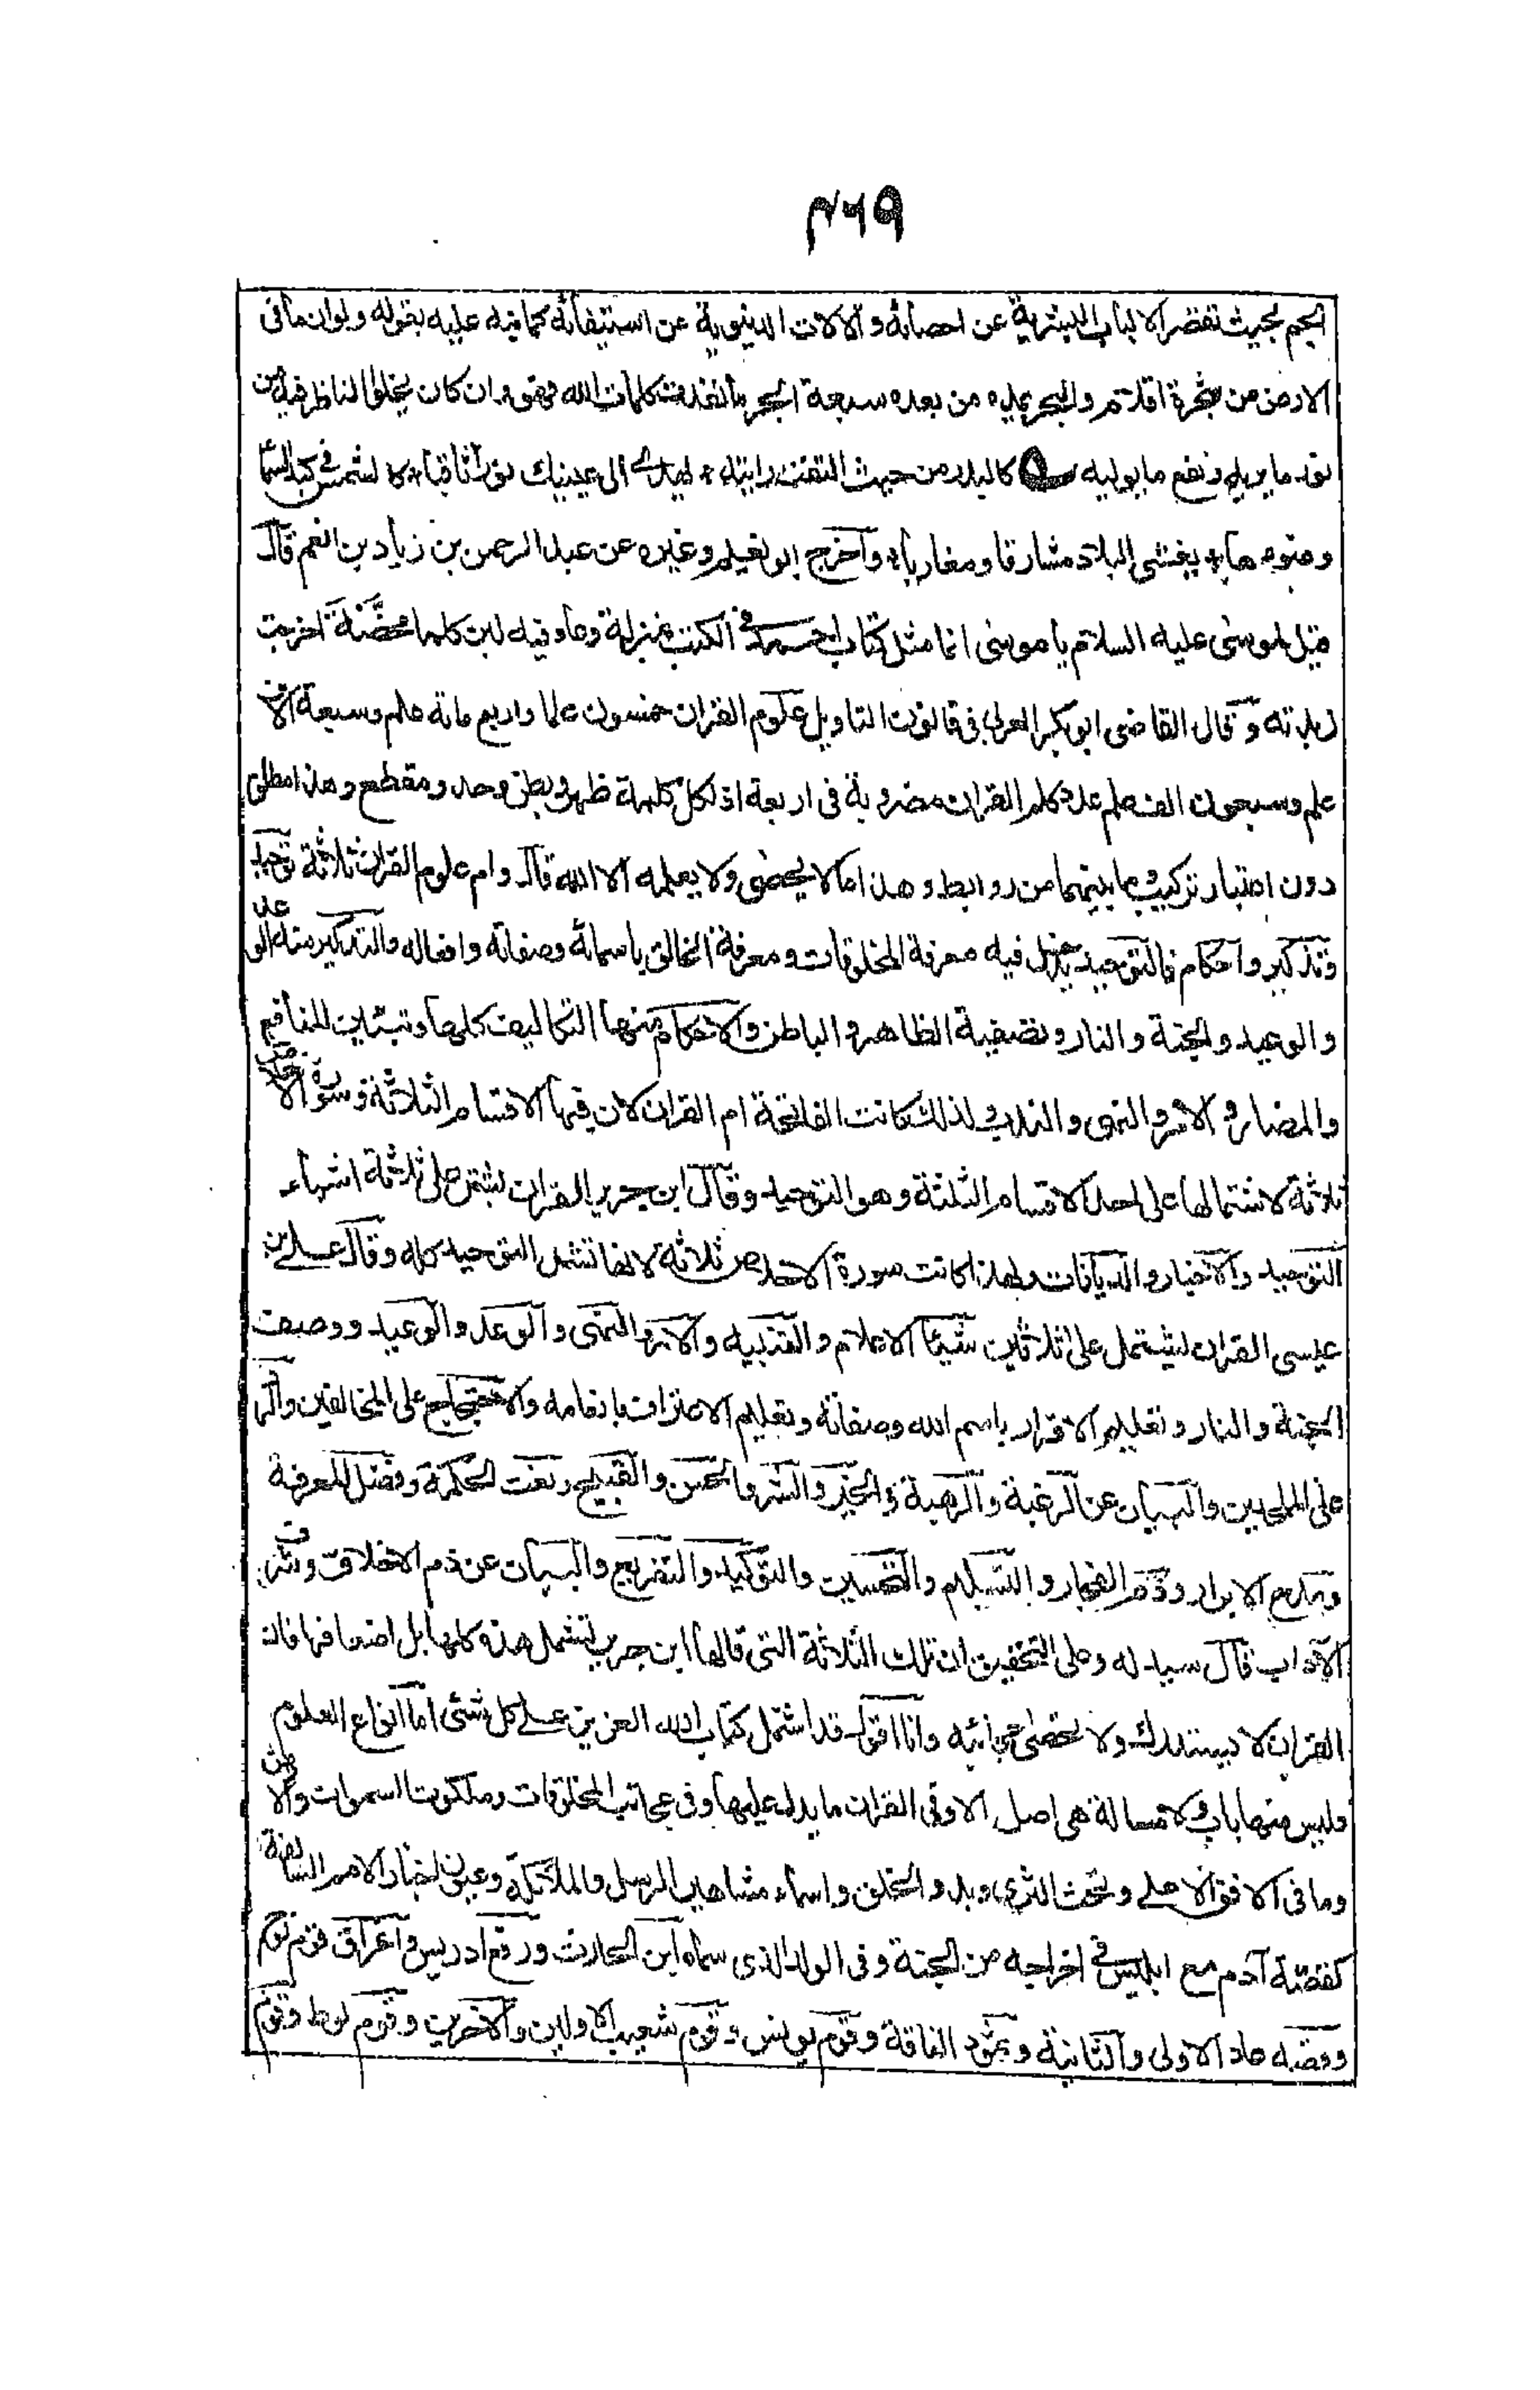 ٤٦٩
الجم بحيث تقصر الالباب البشرية عن احصائه والالات الدنيوية عن استيفائه كما نبه عليه بقوله ولو ان ما فى
الارض من شجرة اقلام والبحر يمده من بعده سبعة ابحر ما نفدت كلمات الله فهو وان كان لا يخلو الناظر فيه من
نور ما يريه ونفع ما يوليه كالبدر من حيث التفت رايته * يهدى الى عينيك نورا ثاقبا * كالشمس فى كبد السما
وضوءها * يغشى البلاد مشارقا ومغاربا * واخرج ابو نعيم وغيره عن عبد الرحمن بن زياد بن انعم قال
قيل لموسى عليه السلام يا موسى انما مثل كتاب احمد فى الكتب بمنزلة وعاء فيه لبن كلما مخضته اخرجت
زبدته وقال القاضى ابو بكر العربى فى قانون التاويل علوم القران خمسون علما واربع مائة علم وسبعة الاف
علم وسبعون الف علم عدد كلم القران مضروبة فى اربعة اذ لكل كلمة ظهر وبطن وحد ومقطع وهذا مطلق
دون اعتبار تركيب وما بينهما من روابط وهذا ما لا يحصى ولا يعلمه الا الله قال وام علوم القران ثلاثة توحيد
وتذكير واحكام فالتوحيد يدخل فيه معرفة المخلوقات ومعرفة الخالق باسمائه وصفاته وافعاله والتذكير منه الوعد
والوعيد والجنة والنار وتصفية الظاهر والباطن والاحكام منها التكاليف كلها وتبيين المنافع
والمضار والامر والنهى والندب ولذلك كانت الفاتحة ام القران لان فيها الاقسام الثلاثة وسورة الاخلاص
ثلاثة لاشتمالها على احد الاقسام الثلثة وهو التوحيد وقال ابن جرير القران يشتمل على ثلاثة اشياء
التوحيد والاخبار والديانات ولهذا كانت سورة الاخلاص ثلاثة لانها تشمل التوحيد كله وقال على بن
عيسى القران يشتمل على ثلاثين شيئا الاعلام والتنبيه والامر والنهى والوعد والوعيد ووصف
الجنة والنار وتعليم الاقرار باسم الله وصفاته وتعليم الاعتراف بانعامه والاحتجاج على المخالفين والرد
على الملحدين والبيان عن الرغبة والرهبة والخير والشر والحسن والقبيح ونعت الحكمة وفضل المعرفة
ومدح الابرار وذم الفجار والتسليم والتحسين والتوكيد والتقريع والبيان عن ذم الاخلاق وشرف
الآداب قال سيدله وعلى التحقيق ان تلك الثلاثة التى قالها ابن جرير تشمل هذه كلها بل اضعافها فان
القران لا يستدرك ولا تحصى عجائبه وانا اقول قد اشتمل كتاب الله العزيز على كل شئى اما انواع العلوم
فليس منها باب ولا مسالة هى اصل الا وفى القران ما يدل عليها وفى عجائب المخلوقات وملكوت السموات والارض
وما فى الافق الاعلى وتحت الثرى وبدو الخلق واسماء مشاهير الرسل والملائكة وعيون اخبار الامم السالفة
كقصة آدم مع ابليس فى اخراجه من الجنة وفى الولد الذى سماه ابن الحارث ورفع ادريس واغراق قوم نوح
وقصة عاد الاولى والثانية وثمود الناقة وقوم يونس وقوم شعيب الاولين والآخرين وقوم لوط وقوم